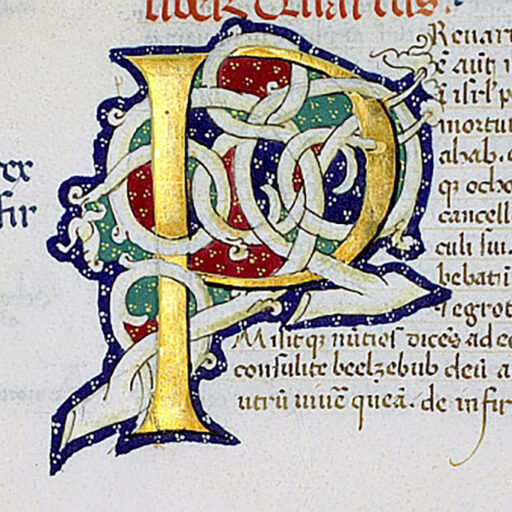 liber Quartus.
PRevari
ē aūt i
isrl' p
mortu
ahab.
q ocho
cancell
culi sui.
hebat i
egrot
Misitq nūtios dicēs ad eo
consulite beelzebub deū a
utrū uiuē queā. de infir
ex
fir